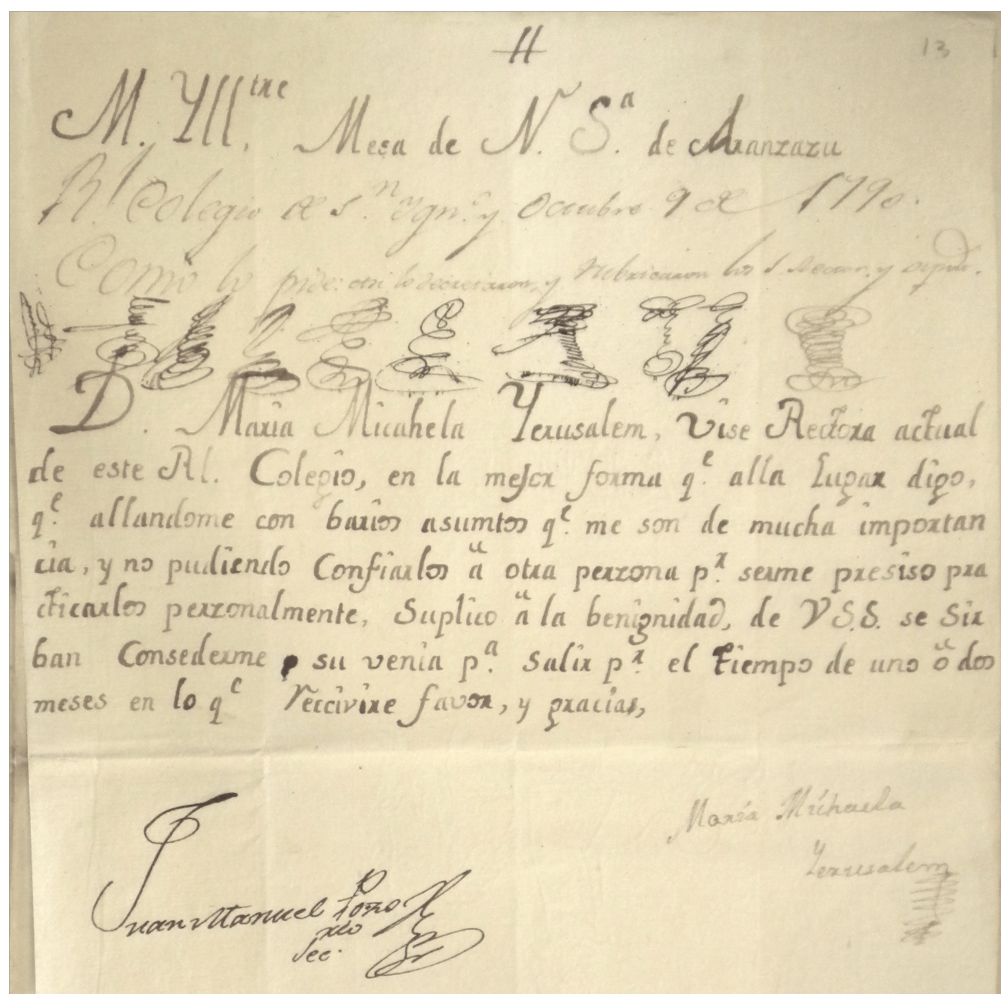 13
M. Yll.tre Mesa de N. S.a de Aranzazu
Rl. Colegio de S.n Ygn.o y Octubre 9 de 1790.
Como lo pide: asi lo decretaron, y rubricaron los S. Rector, y Diput.
D. Maria Micahela Yerusalem, Vise Rectora actual
de este Rl. Colegio, en la mejor forma q.e alla Lugar digo,
q.e allandome con barios asumtos q.e me son de mucha importan
cia, y no pudiendo Confiarlos â otra perzona p.r serme presiso pra
cticarlos perzonalmente, Suplico â la benignidad, de V.S.S. se Sir
ban Consederme su venia p.a Salir p.r el tiempo de uno ô dos
meses en lo q.e reccivire favor, y gracias,
Maria Michaela
Yerusalem
Juan Manuel
Sec.